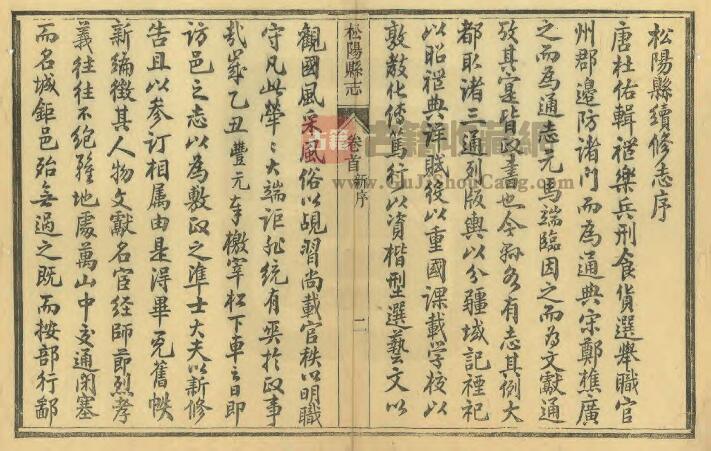 松陽縣續修志序
唐杜佑輯禮樂兵刑食貨選舉職官
州郡邊防諸門而為通典宋鄭樵廣
之而為通志元馬端臨因之而為文獻通
攷其實是皆政書也今縣各有志其例大
都取諸三通列版輿以分疆域記禋祀
以昭禮典詳賦役以重國課載學校以
敦教化傳篤行以資楷型選藝文以
松陽縣志
卷首
新序
二
觀國風采風俗以覘習尚載官秩以明職
守凡此犖〻大端詎非統有與於政事
哉歲乙丑豐元奉檄宰松下車之日即
訪邑之志以為敷政之準士大夫以新修
告且以參訂相属由是得畢覓舊帙
新編徵其人物文獻名宦經師節烈孝
義往往不絕雖地處萬山中交通閉塞
而名城鉅邑殆無過之既而按部行鄙
古籍收藏网
www.GuJiShouCang.com